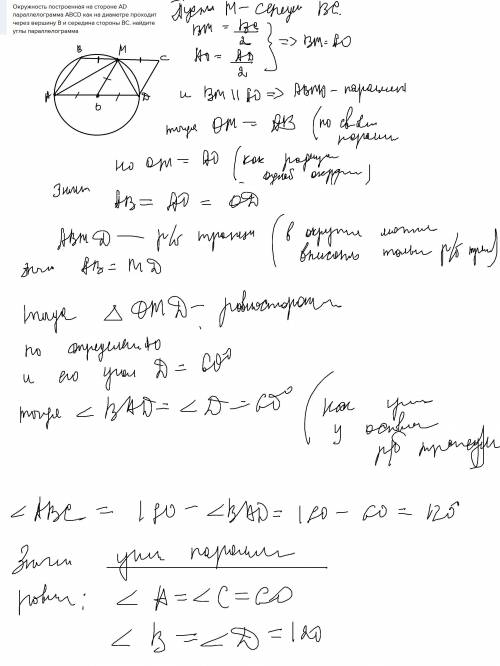 Окружность построенная на стороне AD
параллелограмма ABCD как на диаметре проходит
через вершину B и середине стороны BC. найдите
углы параллелограмма
Пусть M - середи BC.
BM = BC/2
AO = AD/2
=> BM = AO
и BM || AO => ABMO - паралл
B M C
A O D
тогда OM = AB (по св
паралл
но OM = AO (как радиусы
одной окружн)
Значит
AB = AO = OD
ABMD — р/б трапец (в окружн можно
вписать только р/б трап)
значит AB = MD
тогда △ OMD - равносторон
по определению
и его угол D = 60°
тогда ∠ BAD = ∠ D = 60° (как углы
у основан
р/б трапеции
∠ ABC = 180 - ∠BAD = 180 - 60 = 120
Значит углы паралл
равны: ∠ A = ∠ C = 60
∠ B = ∠ D = 120